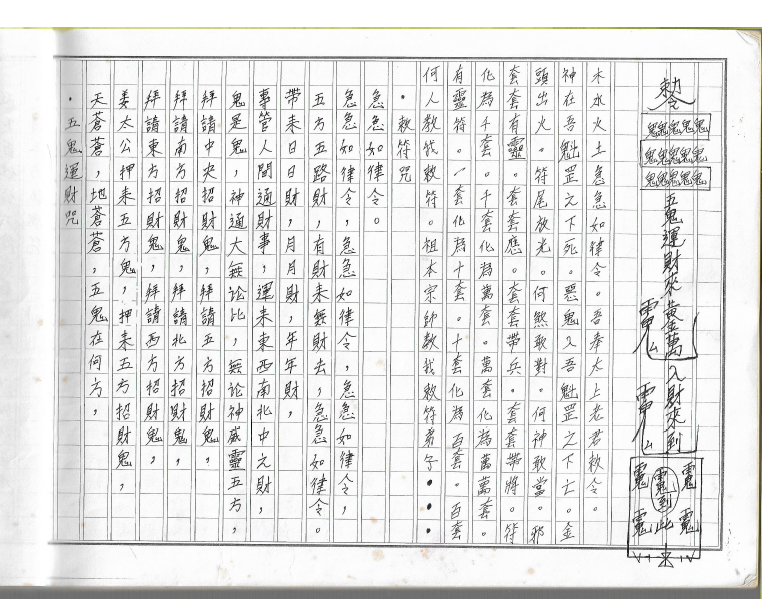 ・五鬼運財咒
天蒼蒼，地蒼蒼，五鬼在何方，
姜太公押来五方鬼，押来五方招財鬼，
拜請東方招財鬼，拜請西方招財鬼，
拜請南方招財鬼，拜請北方招財鬼，
拜請中央招財鬼，拜請五方招財鬼，
鬼是鬼，神通大無論比，無論神威靈五方，
事管人間通財事，運来東西南北中之財，
帶来日日財，月月財，年年財，
五方五路財，有財来無財去，急急如律令。
急急如律令，急急如律令，急急如律令，
急急如律令。
・敕符咒
何人教我敕符。祖本宗師教我敕符弟子•••
有靈符一套化為十套。十套化為百套。百套
化為千套。千套化為萬套。萬套化為萬萬套。
套套有靈。套套應。套套帶兵。套套帶將。符
頭出火。符尾放光。何煞敢對。何神敢當。邪
神在吾魁罡之下死。惡鬼入吾魁罡之下亡。金
木水火土急急如律令。吾奉太上老君敕令。
鬼鬼鬼鬼鬼
鬼鬼鬼鬼鬼
鬼鬼鬼鬼鬼
五鬼運財來黃金萬入財來到
到此